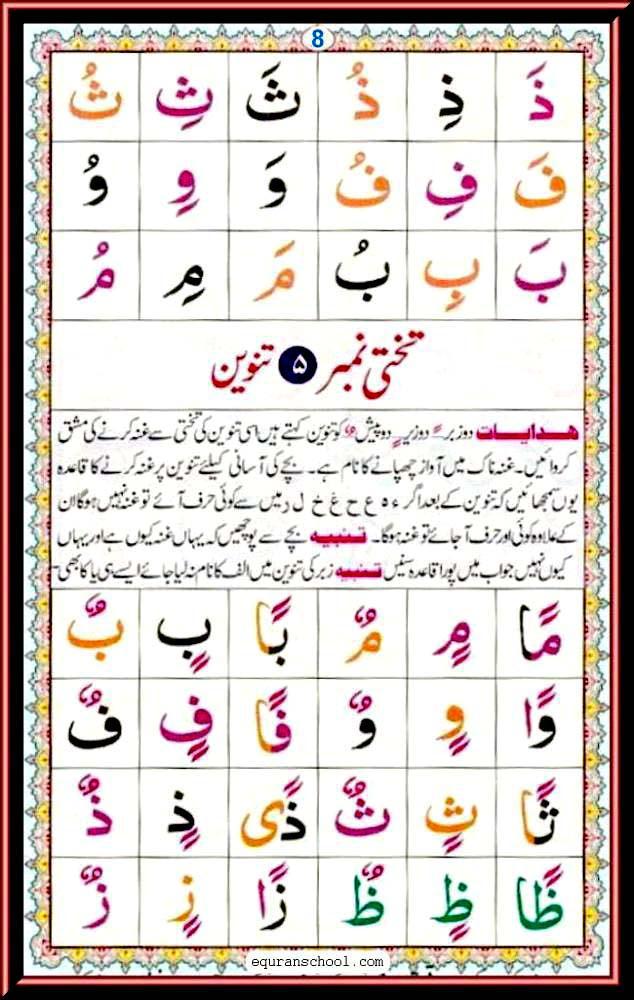 8
ذَ ذِ ذُ ثَ ثِ ثُ
فَ فِ فُ وَ وِ وُ
بَ بِ بُ مَ مِ مُ
تختی نمبر ۵ تنوین
ہدایات دوزبر ً دوزیر ٍ دوپیش ٌ کو تنوین کہتے ہیں اسی تنوین کی تختی سے غنہ کرنے کی مشق
کروائیں۔ غنہ ناک میں آواز چھپانے کا نام ہے۔ بچے کی آسانی کیلئے تنوین پر غنہ کرنے کا قاعدہ
یوں سمجھائیں کہ تنوین کے بعد اگر ء ہ ع ح غ خ ل ر میں سے کوئی حرف آئے تو غنہ نہیں ہوگا ان
کے علاوہ کوئی اور حرف آجائے تو غنہ ہوگا۔ تنبیہ بچے سے پوچھیں کہ یہاں غنہ کیوں ہے اور یہاں
کیوں نہیں جواب میں پورا قاعدہ سنیں تنبیہ زبر کی تنوین میں الف کا نام نہ لیا جائے ایسے ہی یا کا بھی
مًا مٍ مٌ بًا بٍ بٌ
وًا وٍ وٌ فًا فٍ فٌ
ثًا ثٍ ثٌ ذًى ذٍ ذٌ
ظًا ظٍ ظٌ زًا زٍ زٌ
equranschool.com